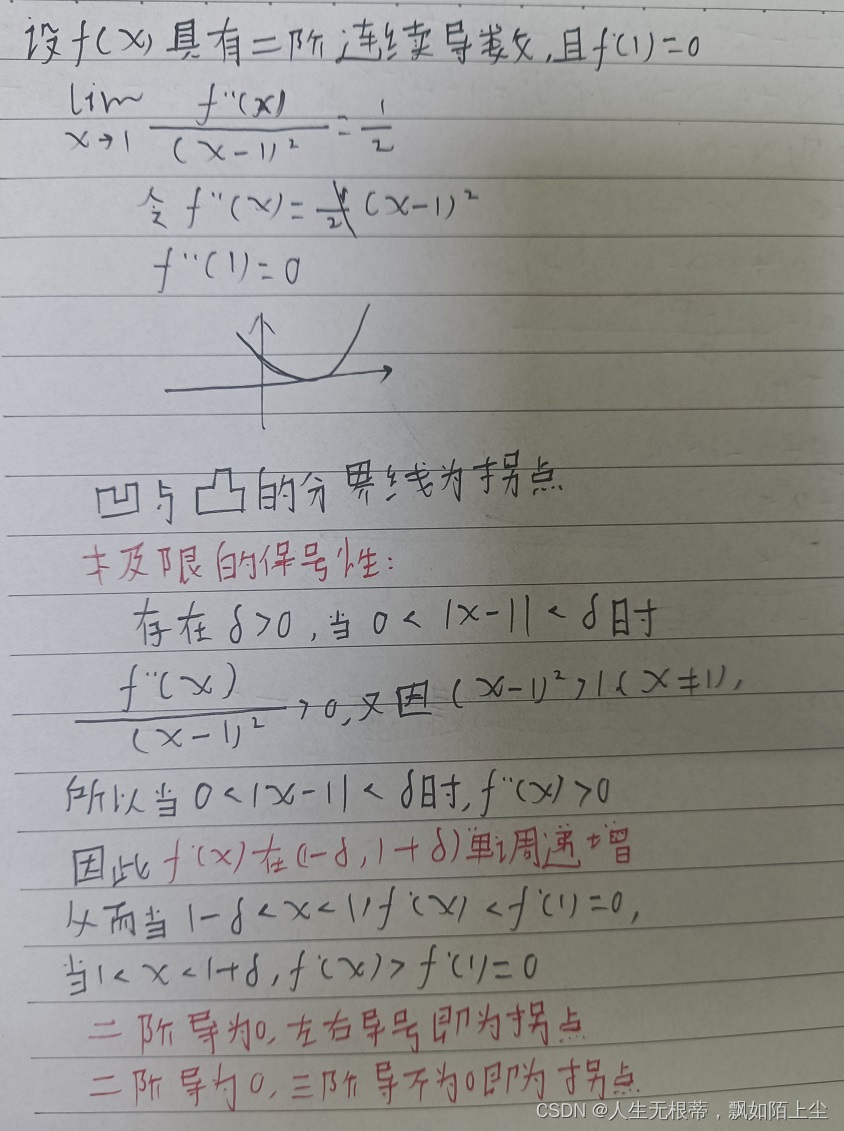 设f(x)具有二阶连续导数,且f'(1)=0
lim x→1 f''(x)/(x-1)² = 1/2
令f''(x)=1/2(x-1)²
f''(1)=0
凹与凸的分界线为拐点
极限的保号性:
存在δ>0,当0<|x-1|<δ时
f''(x)/(x-1)²>0,又因(x-1)²>1(x≠1),
所以当0<|x-1|<δ时,f''(x)>0
因此f'(x)在(1-δ,1+δ)单调递增
从而当1-δ<x<1,f'(x)<f'(1)=0,
当1<x<1+δ,f'(x)>f'(1)=0
二阶导为0,左右异号即为拐点
二阶导为0,三阶导不为0即为拐点
CSDN @人生无根蒂，飘如陌上尘